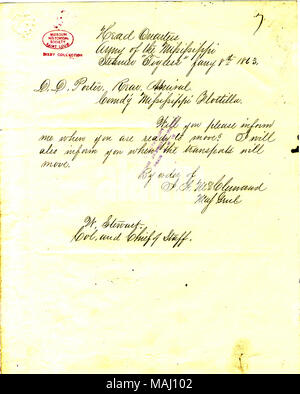 7
MISSOURI
HISTORICAL
SOCIETY
SAINT LOUIS
BIXBY COLLECTION
Head Quarters
Army of the Mississippi
Steamer "Tigress" Jany 8th 1863.
D. D. Porter, Rear Admiral
Comdg Mississippi Flottilla.
Will you please inform
me when you are ready to move? I will
also inform you when the transports will
move.
By order of
J A McClernand
Maj Genl
W. Stewart
Col. and Chief of Staff.
alamy
Image ID: MAJ102
www.alamy.com